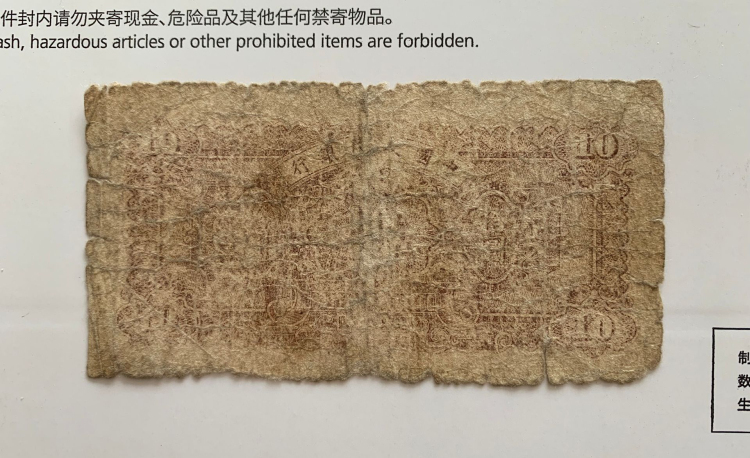 件封内请勿夹寄现金、危险品及其他任何禁寄物品。
ash, hazardous articles or other prohibited items are forbidden.
10
10
行 國中
10
制
数
生